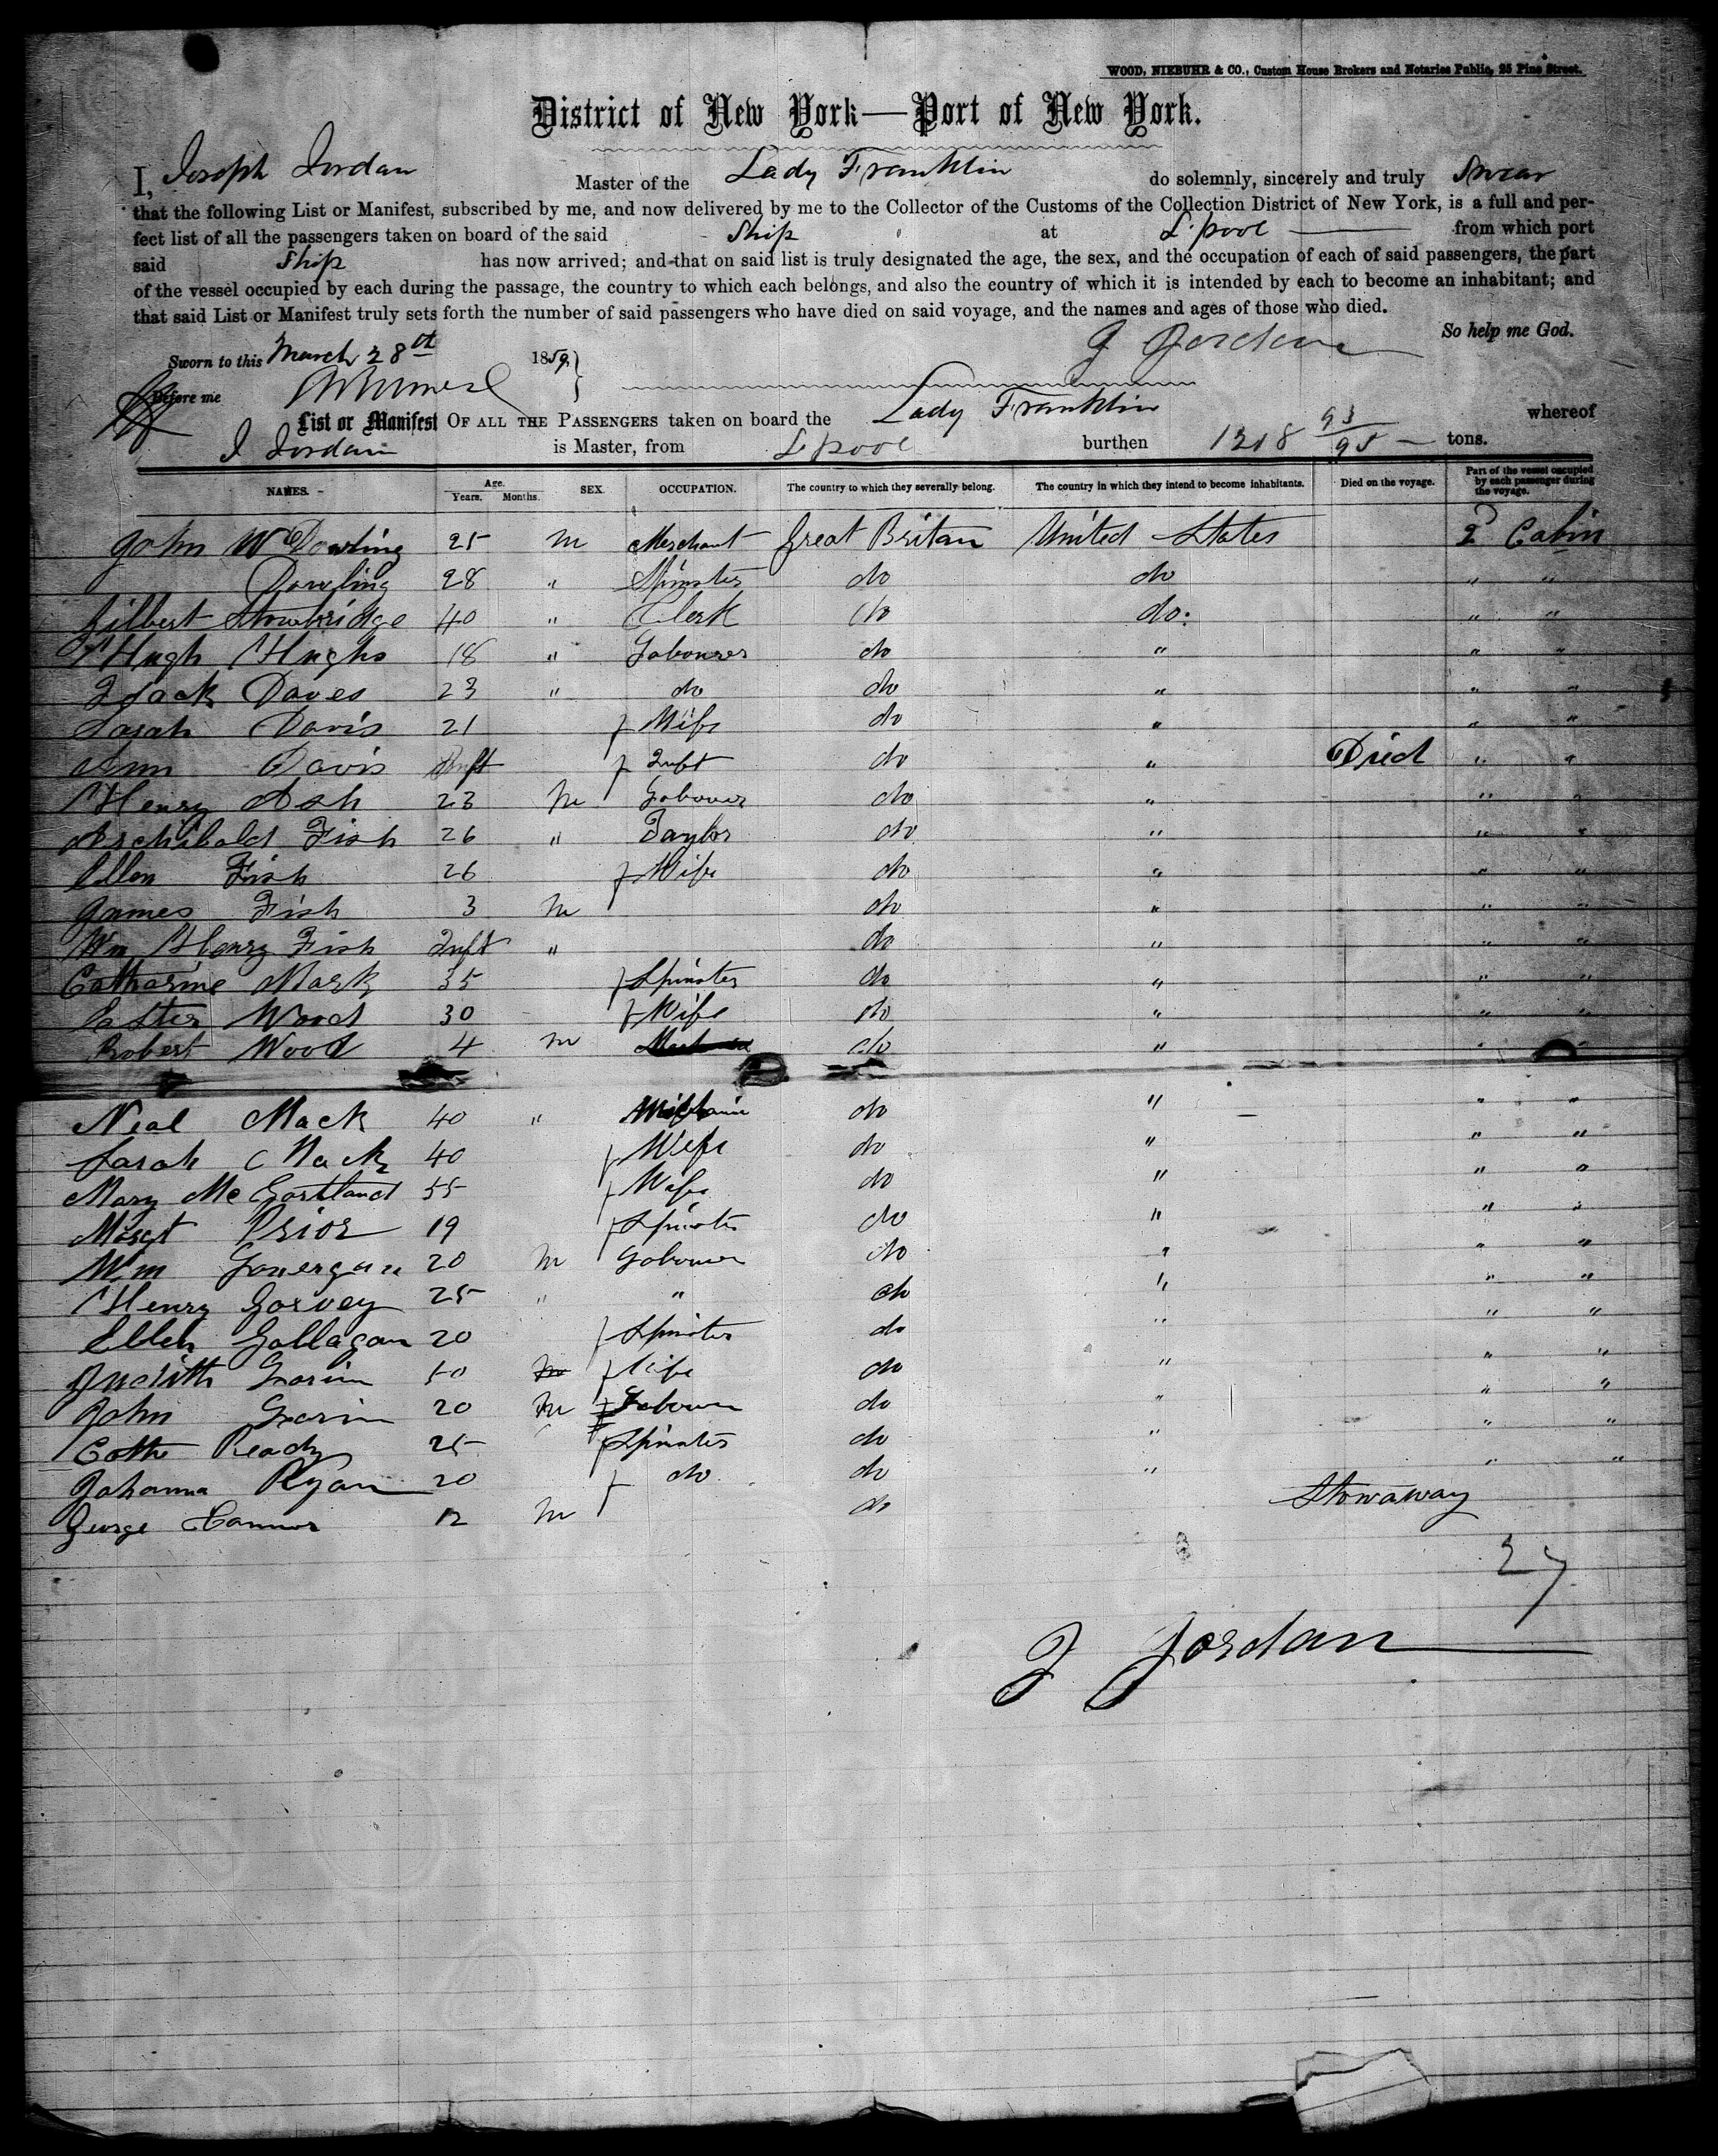 WOOD, NIEBUHR & CO., Custom House Brokers and Notaries Public, 25 Pine Street.
District of New York—Port of New York.
I, Joseph Jordan Master of the Lady Franklin do solemnly, sincerely and truly Swear
that the following List or Manifest, subscribed by me, and now delivered by me to the Collector of the Customs of the Collection District of New York, is a full and per-
fect list of all the passengers taken on board of the said Ship at L'pool from which port
said Ship has now arrived; and that on said list is truly designated the age, the sex, and the occupation of each of said passengers, the part
of the vessel occupied by each during the passage, the country to which each belongs, and also the country of which it is intended by each to become an inhabitant; and
that said List or Manifest truly sets forth the number of said passengers who have died on said voyage, and the names and ages of those who died.
J Jordan So help me God.
Sworn to this March 28th 1859
Before me
List or Manifest OF ALL THE PASSENGERS taken on board the Lady Franklin whereof
J Jordan is Master, from Lpool burthen 1318 93/95 tons.
NAMES. Age. Years. Months. SEX. OCCUPATION. The country to which they severally belong. The country in which they intend to become inhabitants. Died on the voyage. Part of the vessel occupied by each passenger during the voyage.
John W Dowling 25 M Merchant Great Britan United States 2 Cabin
Dowling 28 " Spinster do do " "
Gilbert 40 " Clerk do do. " "
Hugh Hughs 18 " Labourer do " " "
Isack Daves 23 " do do " " "
Sarah Davis 21 f Wife do " " "
Ann Davis Inft f Inft do " Died " "
Henry Ash 23 M Labourer do " " "
Archibald Fish 26 " Taylor do " " "
Ellen Fish 26 f Wife do " " "
James Fish 3 M do " " "
Wm Henry Fish Inft " do " " "
Catharine Mark 35 f Spinster do " " "
Easter Wood 30 f Wife do " " "
Robert Wood 4 M do " " "
Neal Mack 40 " do " " "
Sarah Mack 40 f Wife do " " "
Mary McGortland 55 f Wife do " " "
Margt Prior 19 f Spinster do " " "
Wm Lonergan 20 M Labourer do " " "
Henry Garvey 25 " " do " " "
Ellen Gallagan 20 f Spinster do " " "
Judith Gavin 50 f Wife do " " "
John Gavin 20 M Labourer do " " "
Cathe Ready 25 f Spinster do " " "
Johanna Ryan 20 f do do " " "
George Connor 12 M do Stowaway
27
J Jordan